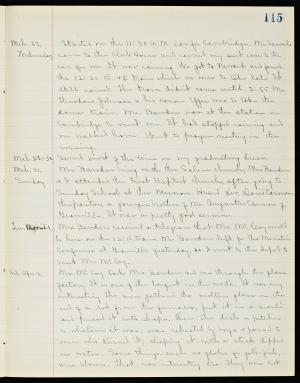 115
Mch. 27, Started on the 11:30 A.M. car for Cambridge. Mr.
Wednesday came to the Club House and carried my suit case to the
car for me. It was raining. We got to Newark and found
the 12:20 B & O train which we were to take late. It
still rained. The train didn't come until 2:55. Mr.
Theodore Johnson & his cousin Effie were to take the
same train. Mr. Banden was at the station in
Cambridge to meet me. It had stopped raining and
we walked home. Went to prayer meeting in the
evening.
Mch. 28-30 Sewed most of the time on my graduating dress.
Mch. 31, Mrs. Banden being with the Salem church, Mrs. Banden
Sunday & I attended the First Baptist church, after going to
Sunday School at the Mission. Heard Rev. Dan Carman
the pastor, a younger brother of Mr. Augustus Carman of
Granville. It was a pretty good sermon.
April 1, Mrs. Banden received a telegram that Mrs. McCoy would
be here on the 12:15 train. Mr. Banden left for the Ministers
Conference at Granville yesterday so I went to the depot to
meet Mrs. McCoy.
April 2, Mr. McCoy took Mrs. Banden and me through the glass
factory. It is one of the largest in the world. It was very
interesting. The men gathered the molten glass on the
end of a rod from the furnaces, put it in a mould,
and pressed it into shape, then the dish or pitcher
or whatever it was, was carried by boys
who turned it, shaping it with a stick dipped
in water. Some things, such as globes for gas jets,
were blown. That was interesting too. They were not